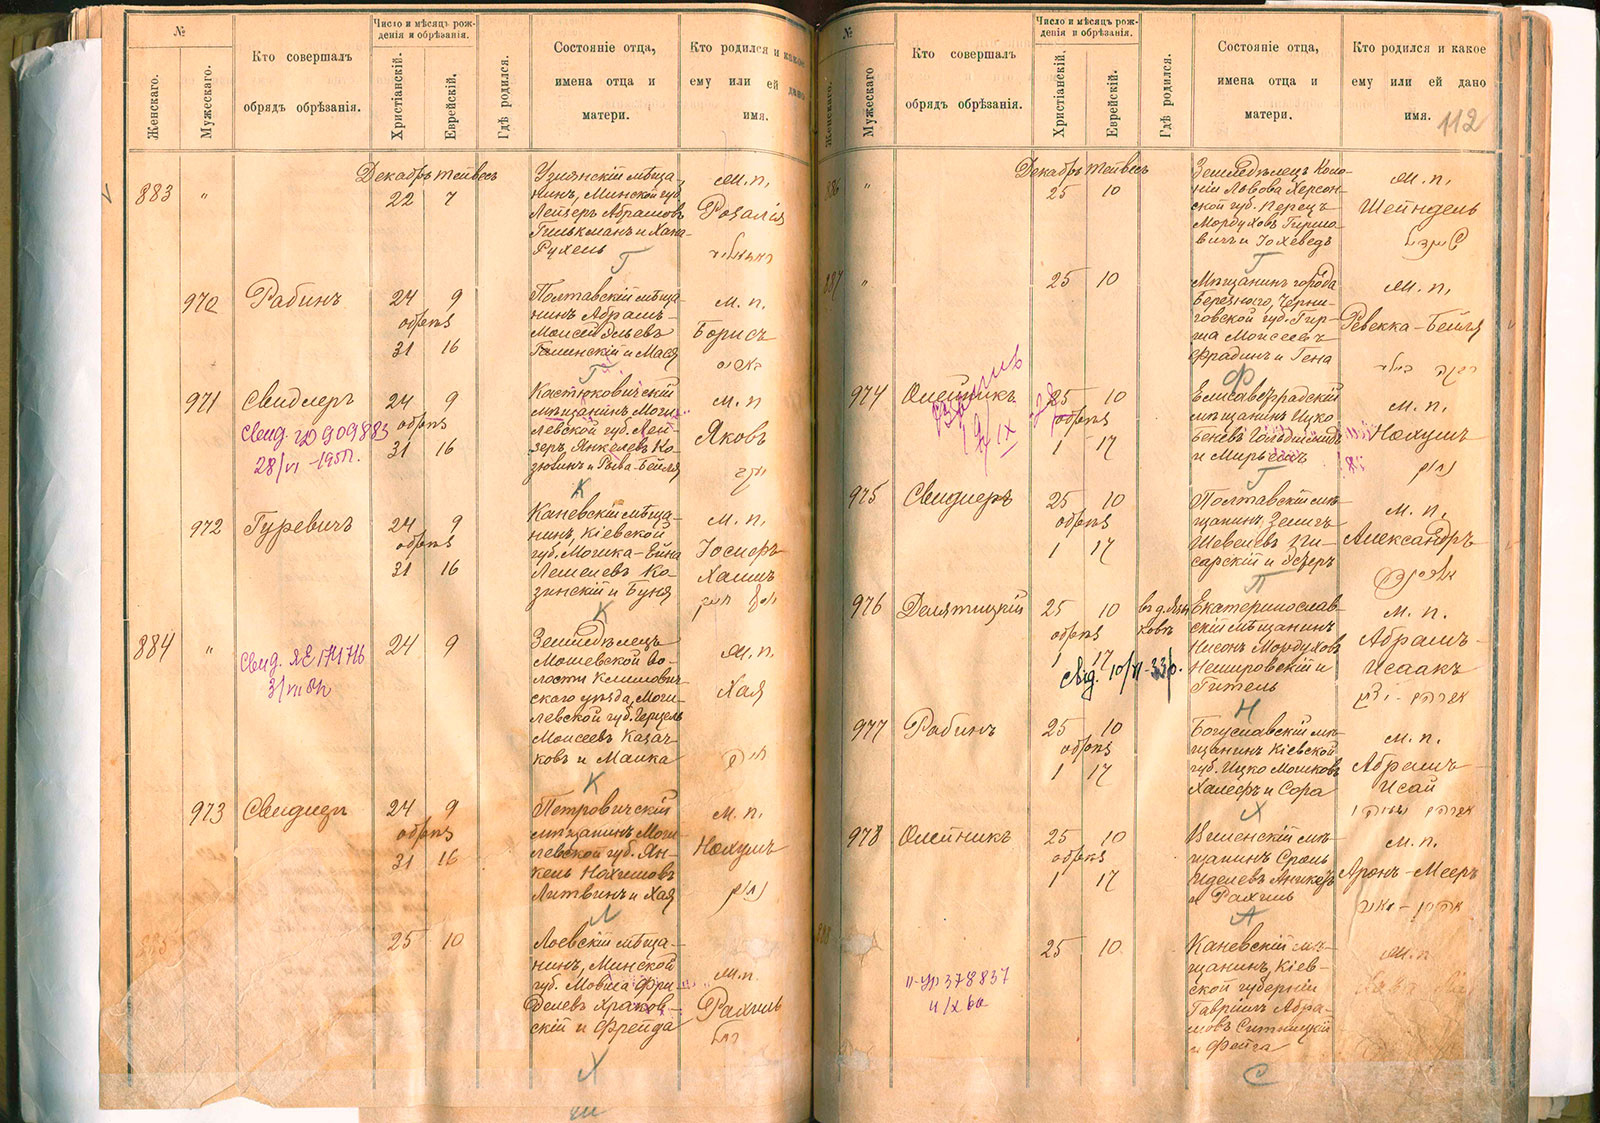 №
Женскаго.
Мужескаго.
Кто совершалъ
обрядъ обрѣзанія.
Число и мѣсяцъ рож-
денія и обрѣзанія.
Христіанскій.
Еврейскій.
Гдѣ родился.
Состояніе отца,
имена отца и
матери.
Кто родился и какое
ему или ей дано
имя.
Декабрь Тейвесъ
883 " 22 7
Узлянскій мѣща-
нинъ, Минской губ.
Лейзеръ Абрамовъ
Гилькманъ и Хана
Рухель
Г
м. п.
Розалія
970 Рабинъ 24 9
обрѣз
31 16
Полтавскій мѣща-
нинъ Абрамъ-
Моисей
Галинскій и Мася
Г
м. п.
Борисъ
971 Свидлеръ 24 9
обрѣз
31 16
28/VI
Костюковичскій
мѣщанинъ Моги-
левской губ. Лей-
зеръ, Янкелевъ Ко-
зюлинъ и Рыва-Бейля
К
м. п
Яковъ
972 Гуревичъ 24 9
обрѣз
31 16
Каневскій мѣща-
нинъ, Кіевской
губ. Мошка-
Лейзеровъ Ко-
зинскій и Буня
К
м. п.
Іосифъ
Хаимъ
884 " 24 9
Земледѣлецъ
волости Климович-
скаго уѣзда, Моги-
левской губ. Герцель
Моисеевъ Казач-
ковъ и Малка
К
м. п.
Хая
973 Свидлеръ 24 9
обрѣз
31 16
Петровичскій
мѣщанинъ Моги-
левской губ. Ян-
кель Нохимовъ
Литвинъ и Хая
Л
м. п.
Нохумъ
נחום
25 10
Лоевскій мѣща-
нинъ, Минской
губ. Мовша Фри-
делевъ Храков-
скій и Фрейда
Х
м. п.
Рахиль
רחל
№
Женскаго.
Мужескаго
Кто совершалъ
обрядъ обрѣзанія.
Число и мѣсяцъ рож-
денія и обрѣзанія.
Христіанскій.
Еврейскій.
Гдѣ родился.
Состояніе отца,
имена отца и
матери.
Кто родился и какое
ему или ей дано
имя.
112
Декабрь Тейвесъ
886 " 25 10
Земледѣлецъ Коло-
ніи Львова Херсон-
ской губ. Перецъ
Мордуховъ Гиршо-
вичъ и Іохеведъ
Г
м. п.
Шейндель
887 " 25 10
Мѣщанинъ города
Березного, Черни-
говской губ. Гир-
ша Моисеевъ
Фрадинъ и Гена
Ф
м. п.
Ревекка-Бейля
974 Олейникъ 25 10
обрѣз
1 17
Елисаветградскій
мѣщанинъ Ицко
Беневъ Гольдшмидъ
и Мирьямъ
Г
м. п.
Нохумъ
נחום
975 Свидлеръ 25 10
обрѣз
1 17
Полтавскій мѣ-
щанинъ, Зеликъ
Шевелевъ Пи-
сарскій и Эсѳеръ
П
м. п.
Александръ
976 Делятицкій 25 10
обрѣз
1 17
Екатеринослав-
скій мѣщанинъ
Нисонъ Мордуховъ
Немировскій и
Гитель
Н
м. п.
Абрамъ-
Исаакъ
אברהם - יצחק
977 Рабинъ 25 10
обрѣз
1 17
Богуславскій мѣ-
щанинъ Кіевской
губ. Ицко Мошковъ
Халефъ и Сора
Х
м. п.
Абрамъ-
Исай
978 Олейникъ 25 10
обрѣз
1 17
щанинъ Сроль
Юделевъ
и Рахиль
А
м. п.
Аронъ-Мееръ
אהרן - מאיר
888 25 10
Каневскій мѣ-
щанинъ, Кіев-
ской губерніи
Гавріилъ Абра-
мовъ Ситницкій
и Фейга
С
м. п
Хава